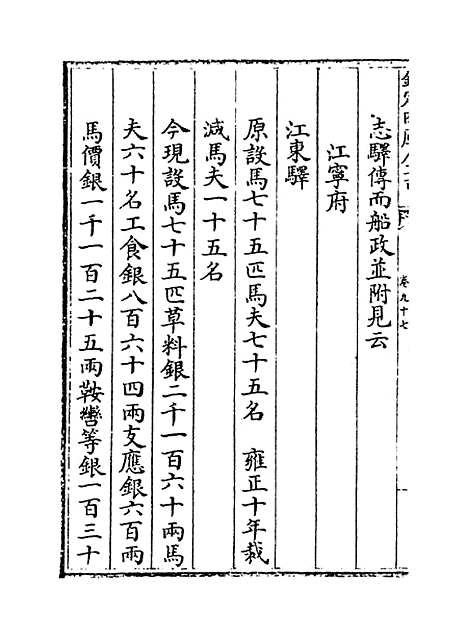 志驛傳而船政並附見云
江寧府
江東驛
原設馬七十五匹馬夫七十五名　雍正十年裁
減馬夫一十五名
今現設馬七十五匹草料銀二千一百六十兩馬
夫六十名工食銀八百六十四兩支應銀六百兩
馬價銀一千一百二十五兩鞍轡等銀一百三十
卷九十七